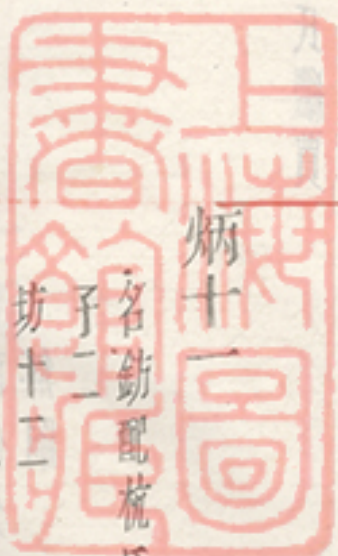 上海圖
書館藏
炳十一
名鈁配杭
子二
坊十二